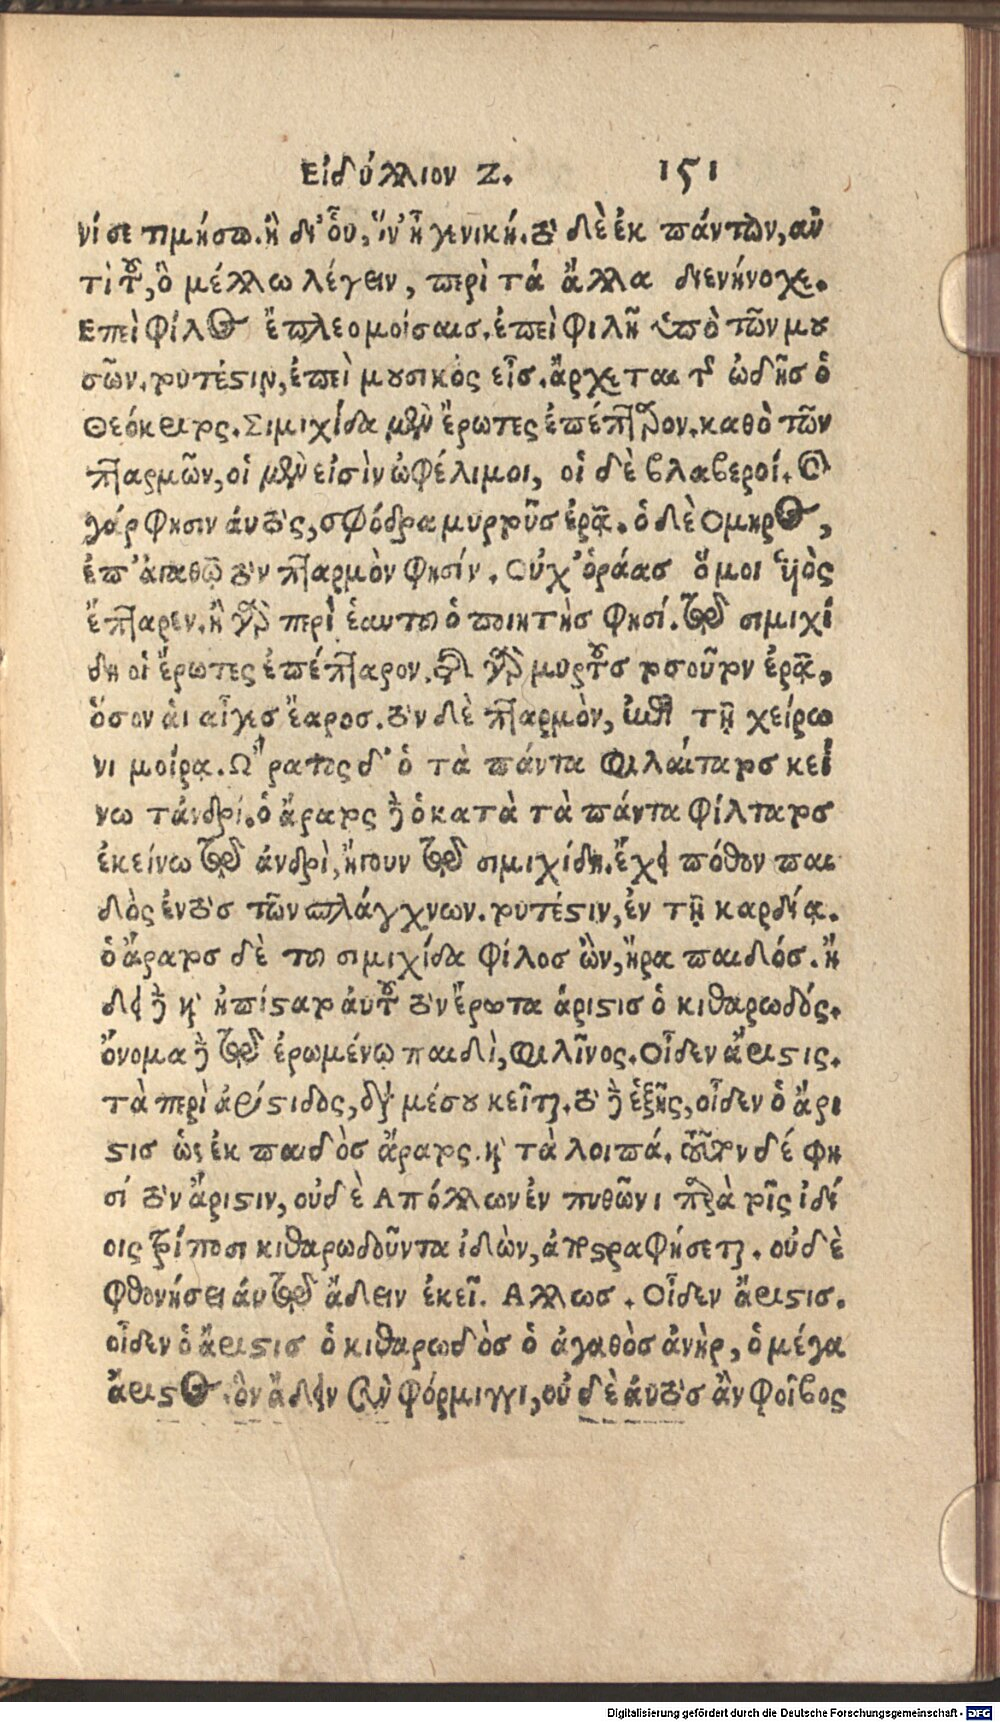 Εἰδύλλιον Ζ. 151
νίσε τιμήσω. ἢ δι' οὗ, ἵν' ᾖ γενική. τὸ δὲ ἐκ πάντων, ἀν
τὶ τοῦ, ὃ μέλλω λέγειν, περὶ τὰ ἄλλα διενήνοχε.
Επεὶ φίλος ἔπλεο μοίσαις. ἐπεὶ φιλῇ ὑπὸ τῶν μου
σῶν. τουτέστιν, ἐπεὶ μουσικὸς εἶσ. ἄρχεται τῆς ὠδῆσ ὁ
Θεόκριτος. Σιμιχίδα μὲν ἔρωτες ἐπέπταρον. καθὸ τῶν
πταρμῶν, οἱ μὲν εἰσὶν ὠφέλιμοι, οἱ δὲ βλαβεροί. οὕτω
γάρ φησιν ἀυτὸς, σφόδρα μυρτοῦσ ἐρᾷ. ὁ δὲ Ομηρος,
ἐπ' ἀγαθῷ τὸν πταρμὸν φησίν. Οὐχ' ὁράασ ὅμοι ὑιὸς
ἔπταρεν. ἢ τοῦτο περὶ ἑαυτοῦ ὁ ποιητὴσ φησί. τῷ σιμιχί
δῃ οἱ ἔρωτες ἐπέπταρον. διὰ τοῦτο μυρτοῦσ τοσοῦτον ἐρᾷ,
ὅσον ἁι αἶγεσ ἔαροσ. τὸν δὲ πταρμὸν, ἐπὶ τῇ χείρω
νι μοίρᾳ. Ωρατος δ' ὁ τὰ πάντα φιλαίτατοσ κεί
νω τἀνδρί. ὁ ἄρατος ἤτοι ὁ κατὰ τὰ πάντα φίλτατοσ
ἐκείνω τῷ ἀνδρὶ, ἤγουν τῷ σιμιχίδῃ. ἔχει πόθον παι
δὸς ἐντὸσ τῶν σπλάγχνων. τουτέστιν, ἐν τῇ καρδίᾳ.
ὁ ἄρατοσ δὲ τοῦ σιμιχίδα φίλοσ ὢν, ἤρα παιδόσ. ἤ
δει ἢ καὶ ἠπίστατο ἀυτοῦ τὸν ἔρωτα ἄριστισ ὁ κιθαρωδός.
ὄνομα ἢ τῷ ἐρωμένῳ παιδὶ, φιλῖνος. Οἶδεν ἄριστις.
τὰ περὶ ἀρίστιδος, διὰ μέσου κεῖται. τὸ ἢ ἑξῆς, οἶδεν ὁ ἄρι
στισ ὡς ἐκ παιδὸσ ἄρατος. καὶ τὰ λοιπά. τοιοῦτον δέ φη
σί τὸν ἄριστιν, οὐδὲ Απόλλων ἐν πυθῶνι παρὰ τοῖς ἰδί
οις τρίποσι κιθαρωδοῦντα ἰδὼν, ἀποστραφήσεται. οὐδὲ
φθονήσει ἀυτῷ ἄδειν ἐκεῖ. Αλλωσ. Οἶδεν ἄριστισ.
οἶδεν ὁ ἄριστισ ὁ κιθαρωδὸσ ὁ ἀγαθὸσ ἀνὴρ, ὁ μέγα
ἄριστος. ὃν ἄδειν σὺν φόρμιγγι, οὐδὲ ἀυτὸσ ἂν φοῖβος